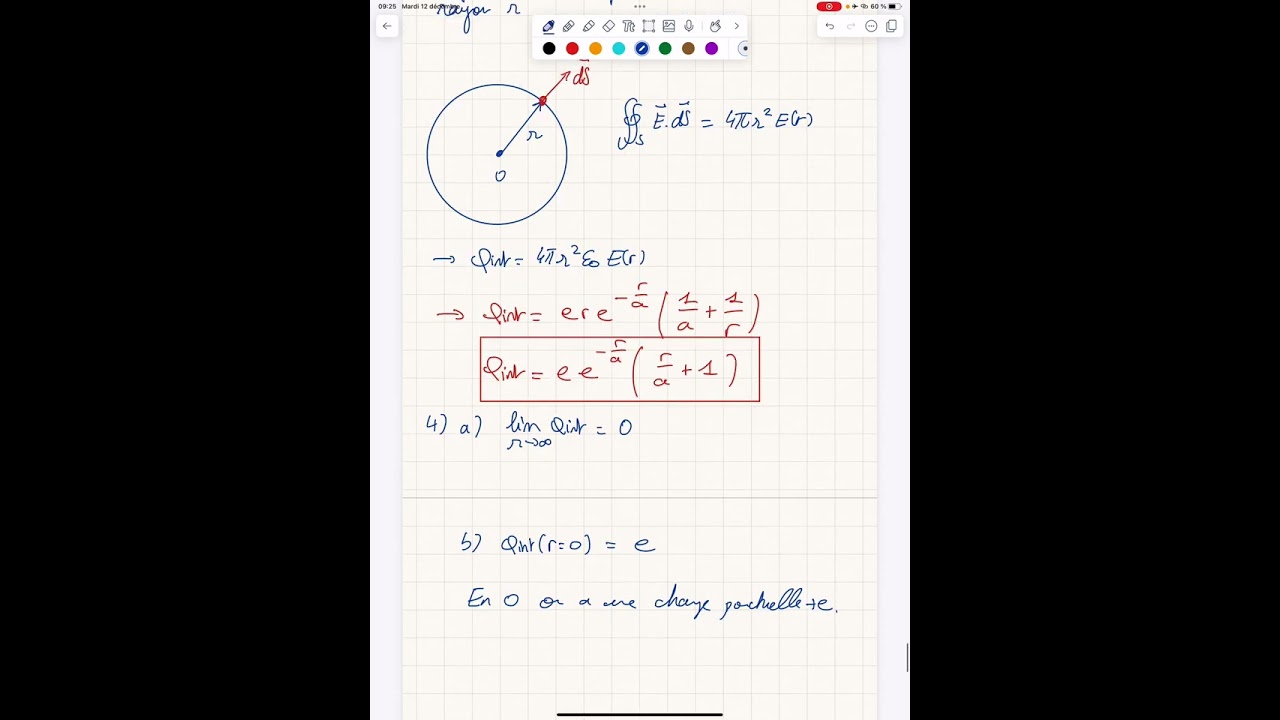 09:25 Mardi 12 décembre
60 %
rayon r
dS⃗
r
O
∯_S E⃗.dS⃗ = 4πr²E(r)
→ Qint = 4πr²ε₀E(r)
→ Qint = e r e^(-r/a) (1/a + 1/r)
Qint = e e^(-r/a) (r/a + 1)
4) a) lim r→∞ Qint = 0
b) Qint(r=0) = e
En O on a une charge ponctuelle +e.